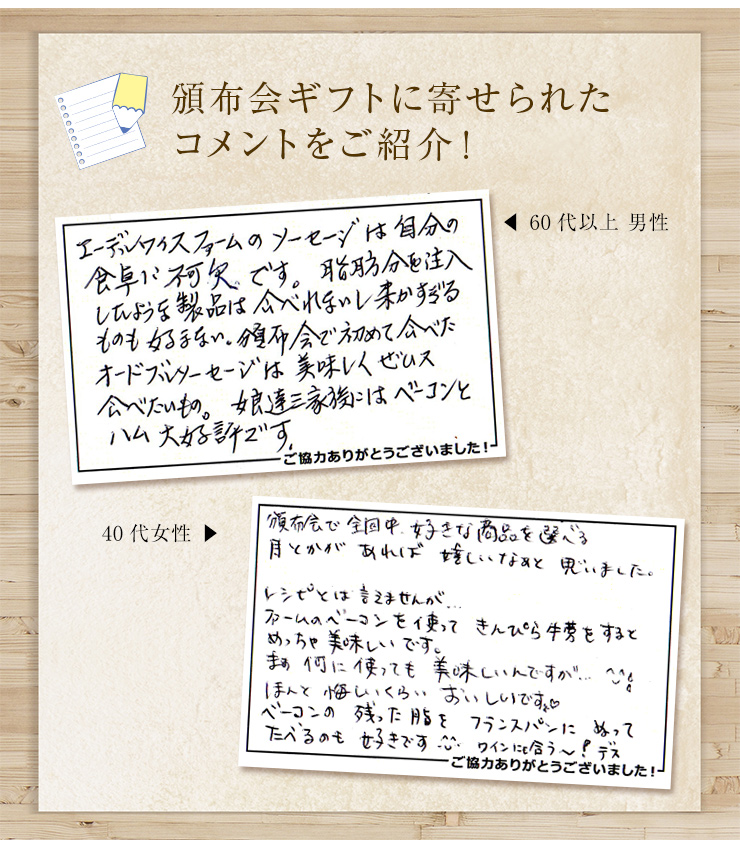 頒布会ギフトに寄せられた
コメントをご紹介!
◀ 60代以上 男性
エーデルワイスファームのソーセージは自分の
食卓に不可欠です。脂肪分を注入
したような製品は食べれないし柔かすぎる
ものも好まない。頒布会で初めて食べた
オードブルソーセージは美味しくぜひ又
食べたいもの。娘達三家族にはベーコンと
ハム大好評です。
ご協力ありがとうございました!
40代女性 ▶
頒布会で全回中、好きな商品を選べる
月とかが あれば 嬉しいなぁと 思いました。
レシピとは言えませんが…
ファームのベーコンを使って きんぴら牛蒡をすると
めっちゃ美味しいです。
まぁ 何に使っても 美味しいんですが…
ほんと 悔しいくらい おいしいです♡
ベーコンの 残った脂を フランスパンに ぬって
たべるのも 好きです ワインにも合う〜!デス
ご協力ありがとうございました!